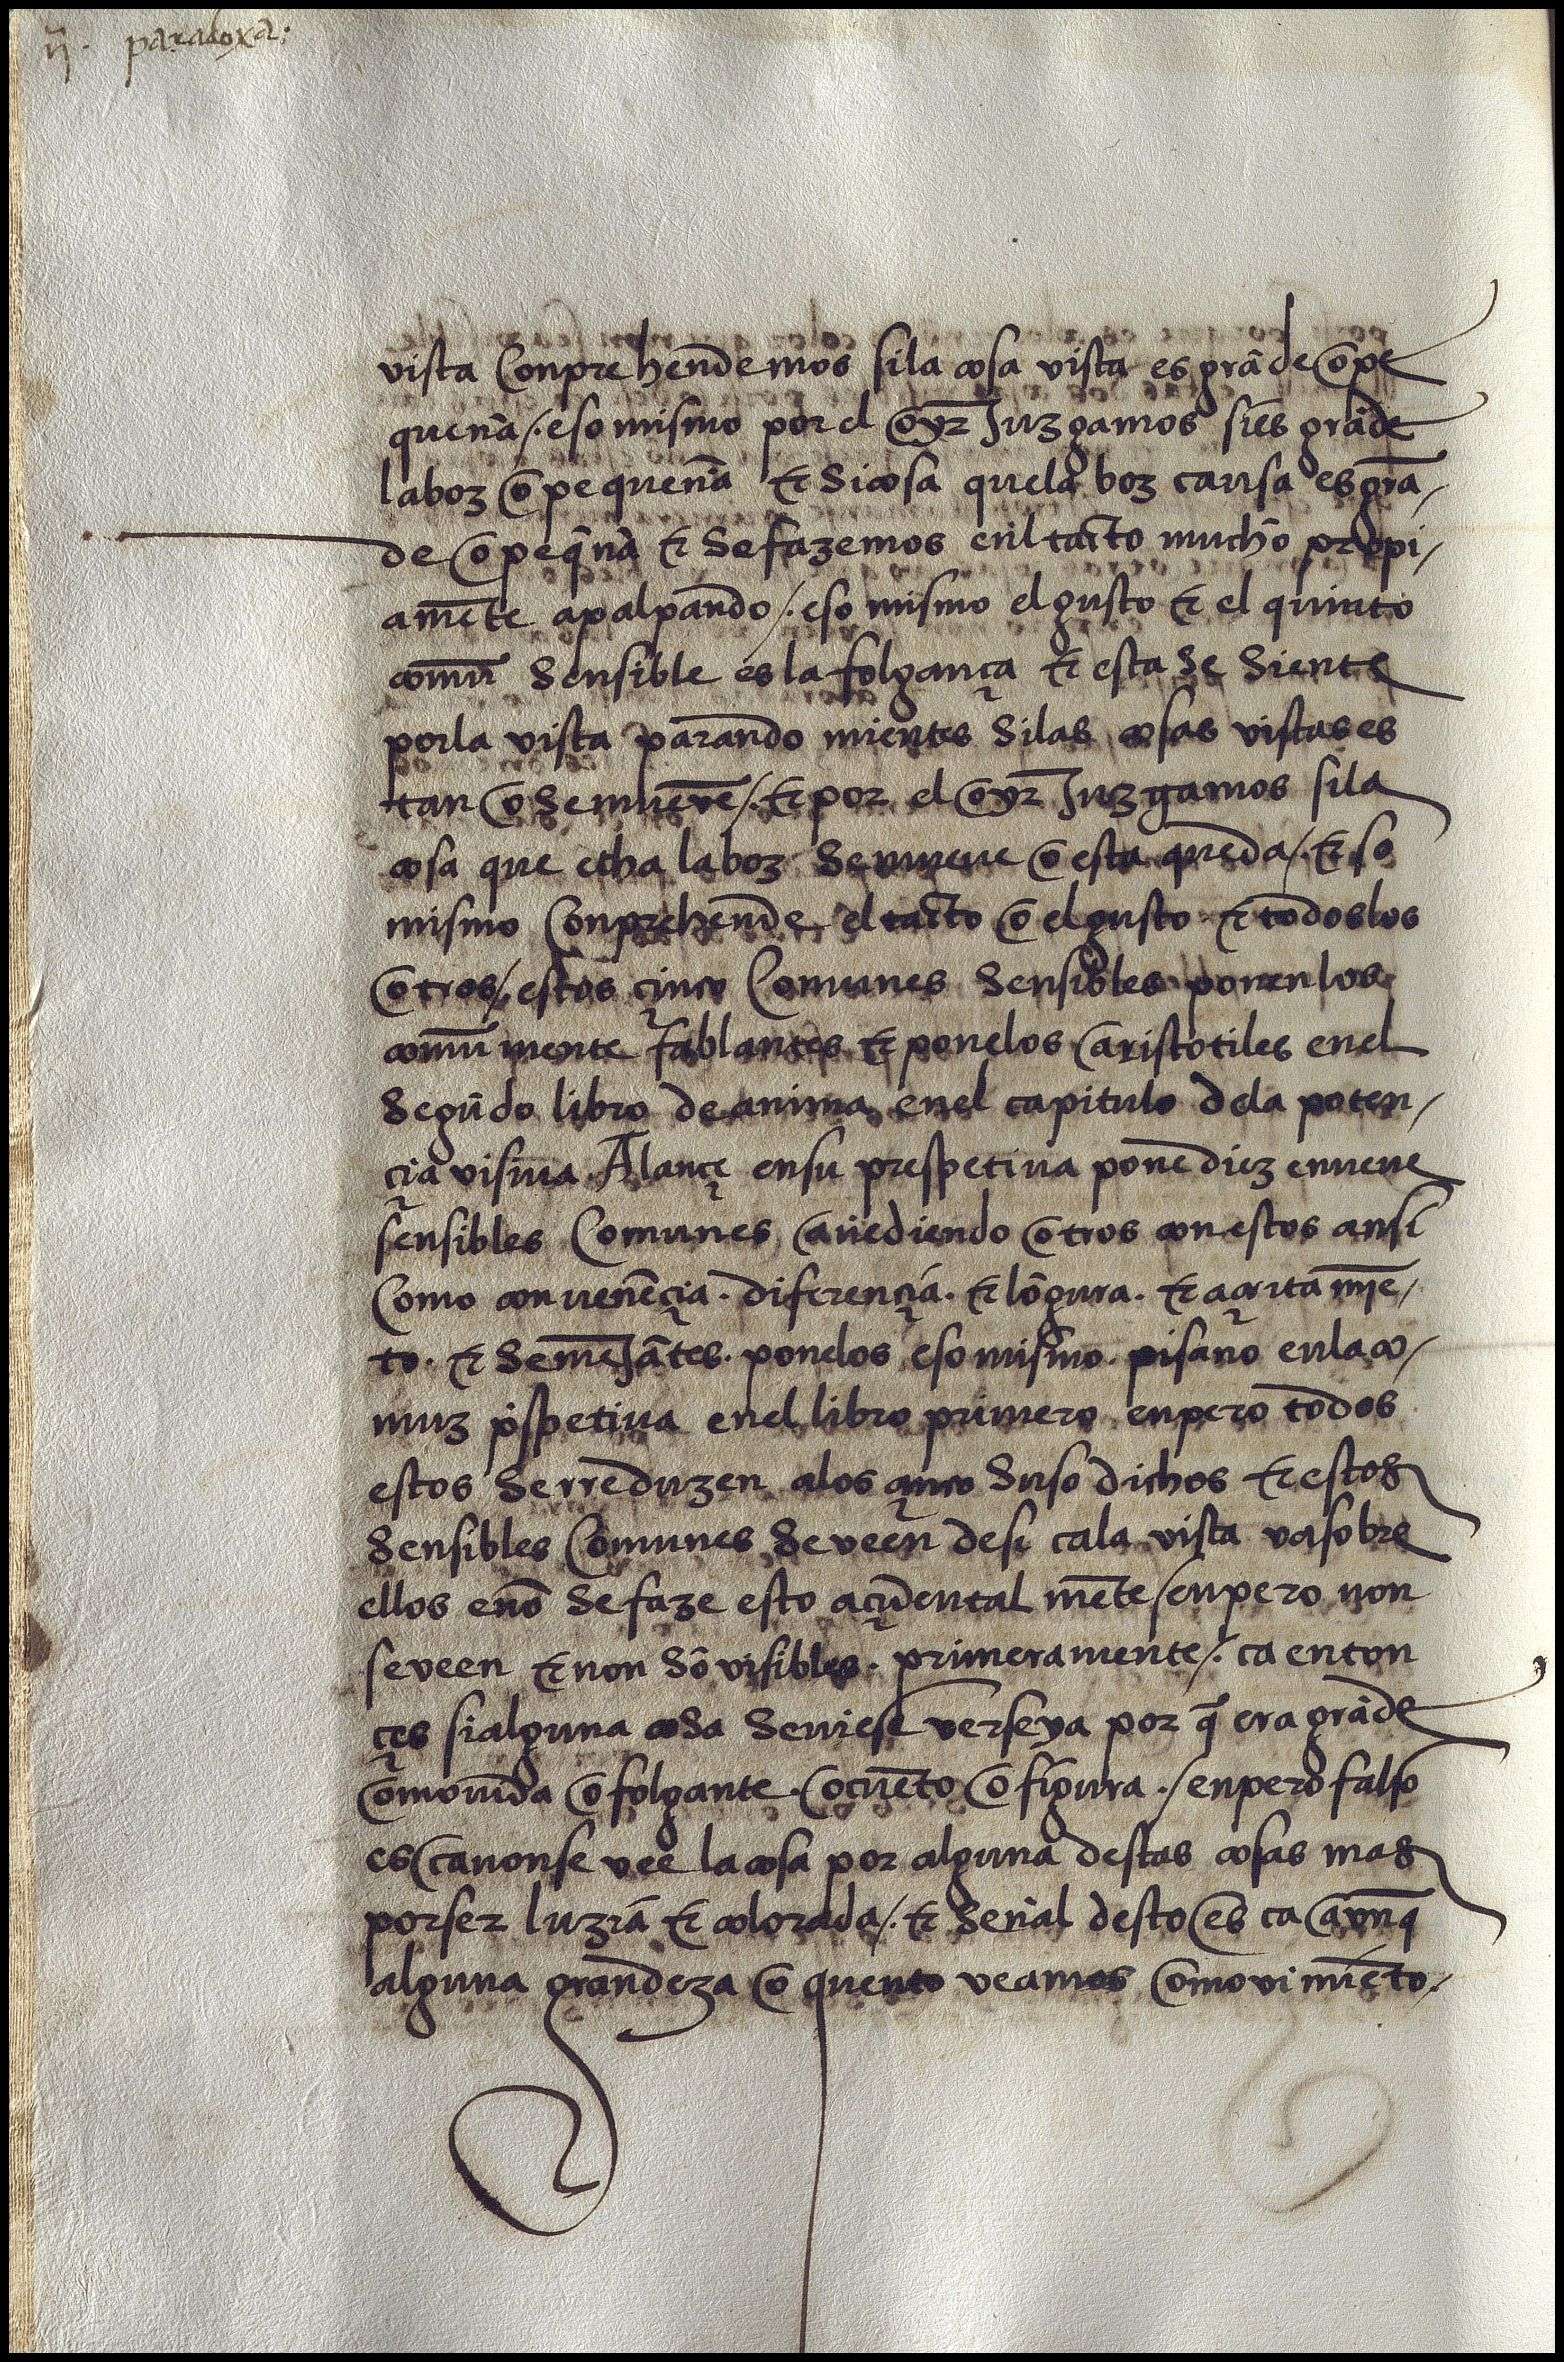 ij. paradoxa:
vista Conprehendemos sila cosa vista es grãde o pe
quena /. eso mismo por el oyr Juzgamos sies grãde
laboz o pequena et si cosa quela boz causa es grã/
de o peq̃na et Se fazemos enl tacto mucho propi/
amẽte apalpando /. eso mismo el gusto et el quinto
comũ Sensible es la folgança et esta Se Siente
porla vista parando mientes Silas cosas vistas es
tan o Se mueuẽ /. et por el oyr Juzgamos sila
cosa que echa la boz Se mueue o esta queda /. et so
mismo Conprehende el tacto o el gusto et todos los
otros /. estos çinco Comunes Sensibles ponen los
comũ mente fablantes et ponelos aristotiles enel
Segũdo libro de anima enel capitulo dela poten/
çia visiua Alançe ensu prespetiua pone diez enueue
sensibles Comunes añediendo otros con estos ansi
Como conuenẽçia . diferençia . et lõgura . et açrtamĩe/
to . et Semejãtes . ponelos eso mismo . pisano enla co/
muz p̃spetiua enel libro primero enpero todos
estos Se rreduzen alos çinco Suso dichos et estos
Sensibles Comunes Se veen desi ca la vista va sobre
ellos enõ Se faze esto açidental mẽte / enpero non
se veen et non Sõ visibles . primeramente /. ca enton
çes si alguna coSa Se viese verse ya por q̃ era grãde
o mouida o folgante . o cuẽto o figura . / enpero falso
es ca non se vee la cosa por alguna destas cosas mas
por ser luzia et colorada /. et Señal desto es ca aunq̃
alguna grandeza o quento veamos o movimiẽto /.